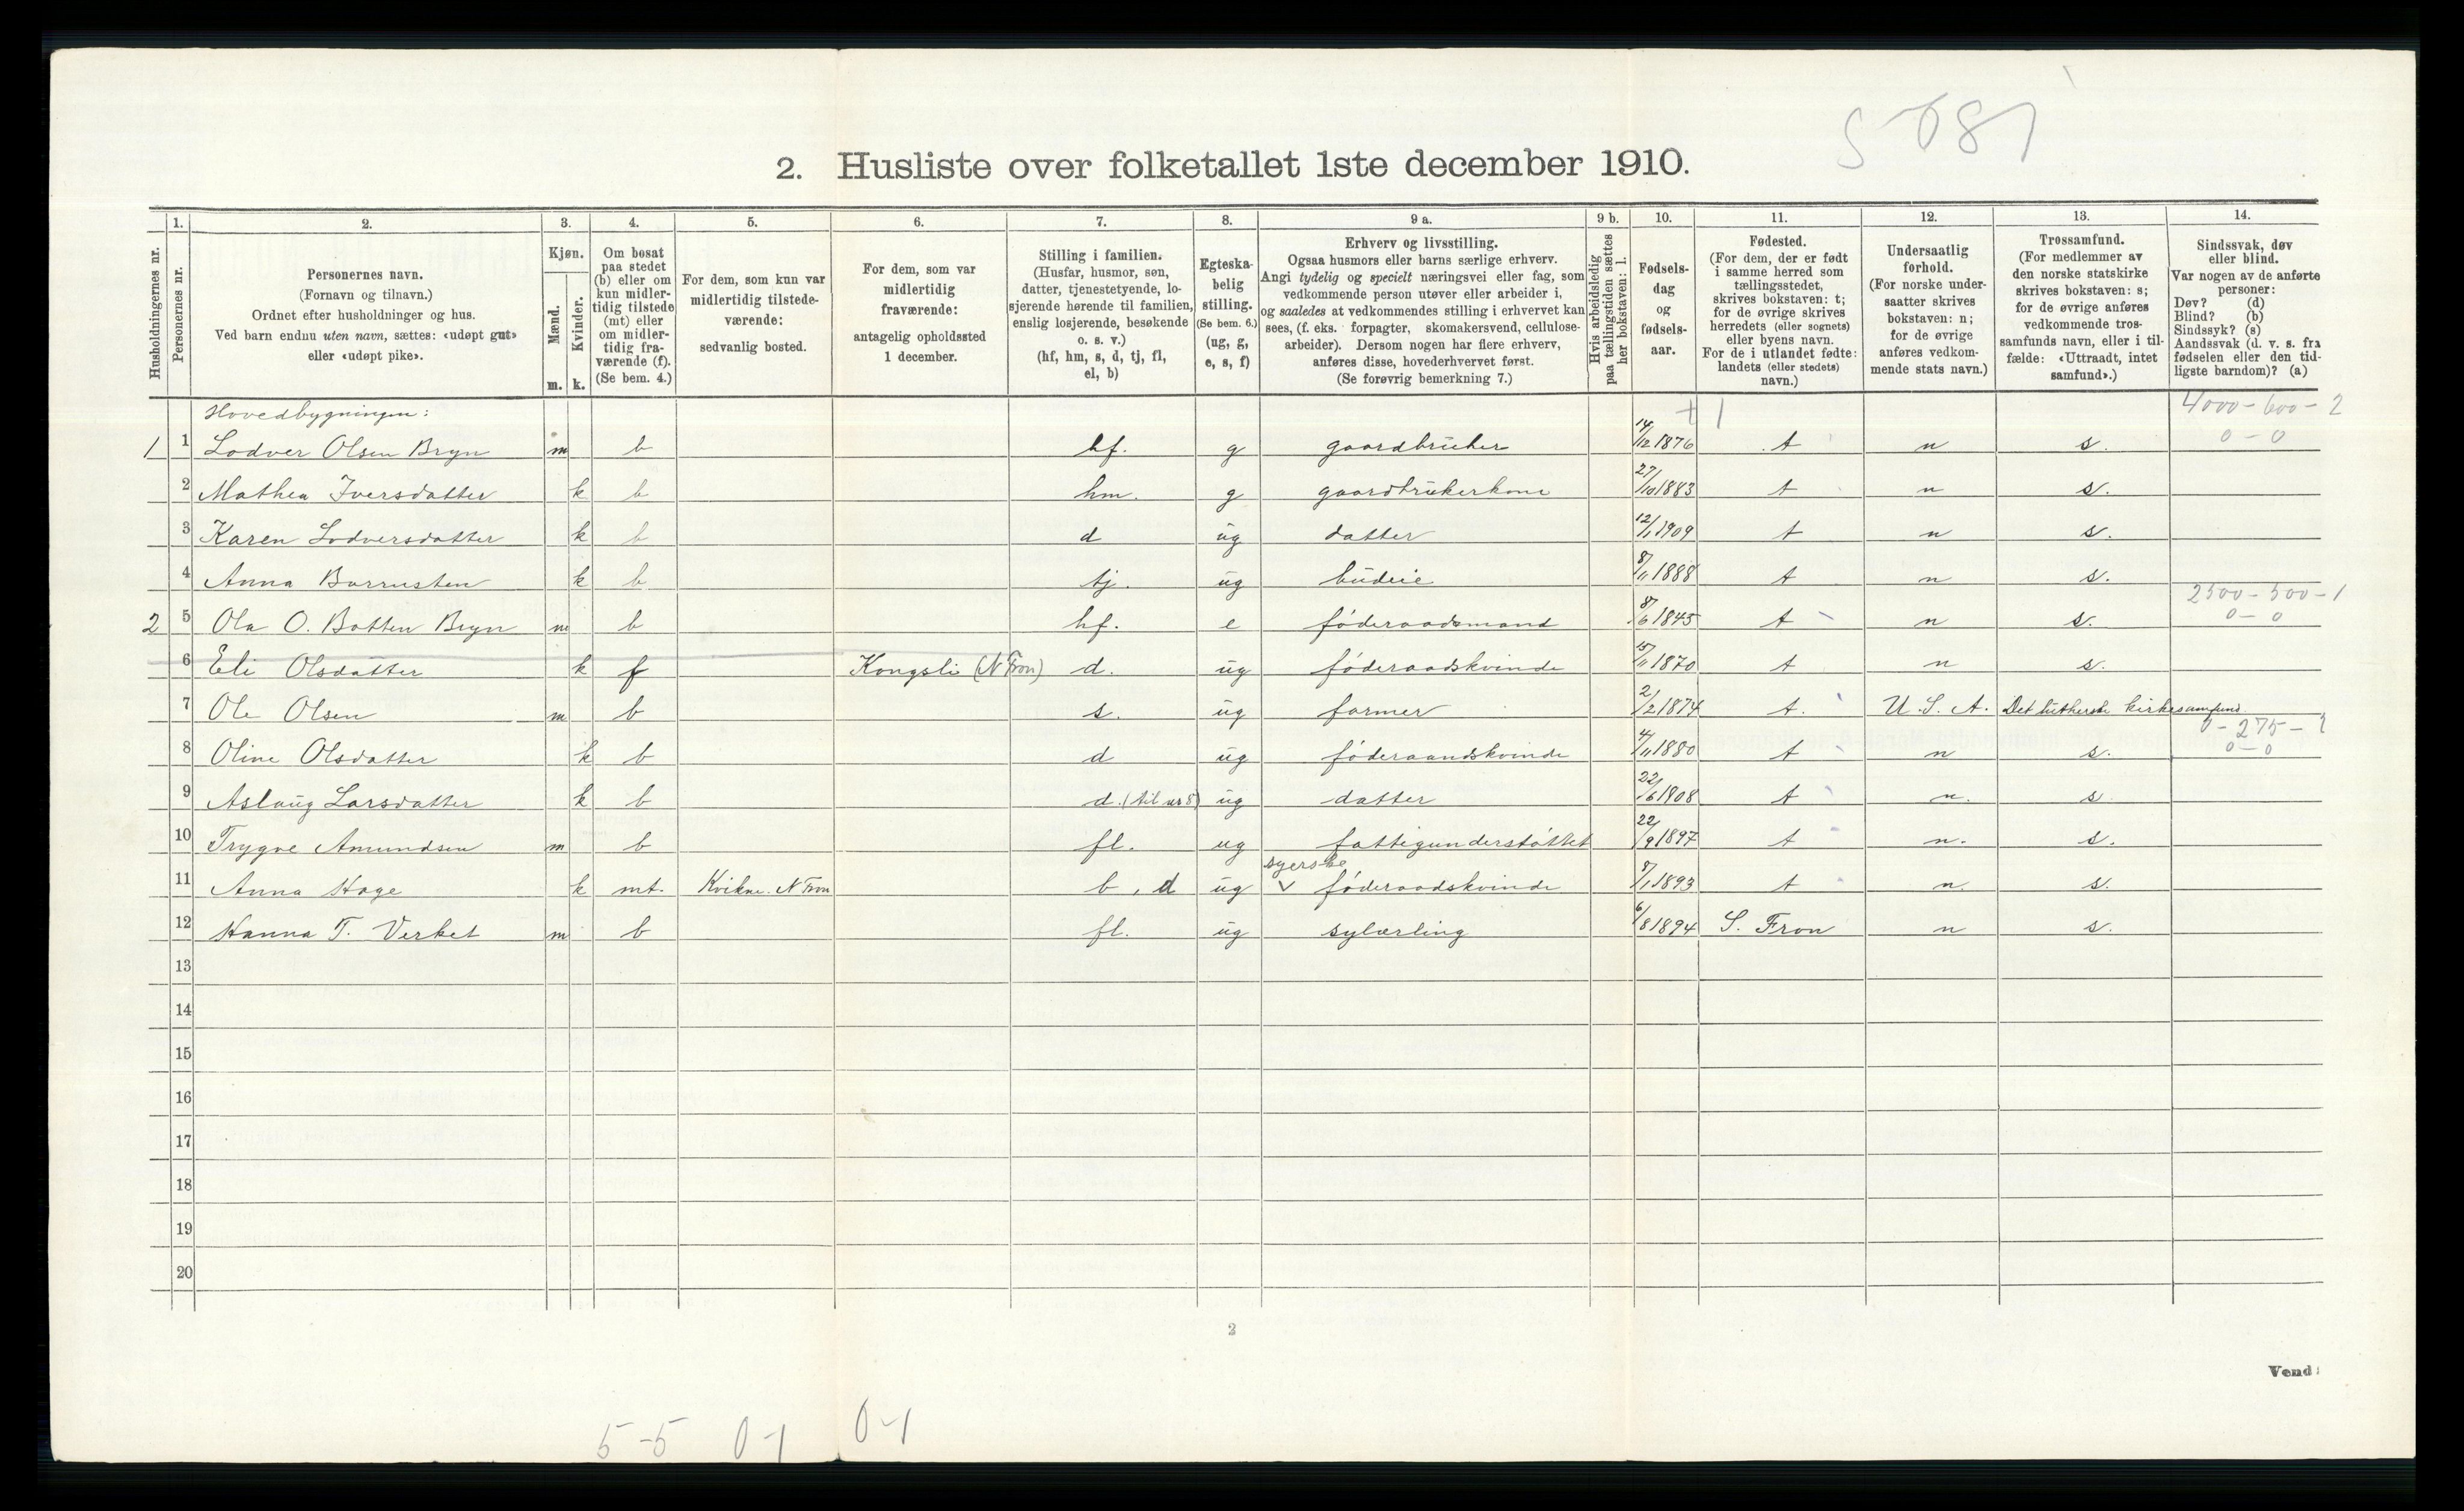 5081
2. Husliste over folketallet 1ste december 1910.
1. 2. 3. 4. 5. 6. 7. 8. 9 a. 9 b. 10. 11. 12. 13. 14.
Husholdningernes nr.
Personernes nr.
Personernes navn.
(Fornavn og tilnavn.)
Ordnet efter husholdninger og hus.
Ved barn endnu uten navn, sættes: «udøpt gut»
eller «udøpt pike».
Kjøn.
Mænd.
Kvinder.
m. k.
Om bosat
paa stedet
(b) eller om
kun midler-
tidig tilstede
(mt) eller
om midler-
tidig fra-
værende (f).
(Se bem. 4.)
For dem, som kun var
midlertidig tilstede-
værende:
sedvanlig bosted.
For dem, som var
midlertidig
fraværende:
antagelig opholdssted
1 december.
Stilling i familien.
(Husfar, husmor, søn,
datter, tjenestetyende, lo-
sjerende hørende til familien,
enslig losjerende, besøkende
o. s. v.)
(hf, hm, s, d, tj, fl,
el, b)
Egteska-
belig
stilling.
(Se bem. 6.)
(ug, g,
e, s, f)
Erhverv og livsstilling.
Ogsaa husmors eller barns særlige erhverv.
Angi tydelig og specielt næringsvei eller fag, som
vedkommende person utøver eller arbeider i,
og saaledes at vedkommendes stilling i erhvervet kan
sees, (f. eks. forpagter, skomakersvend, cellulose-
arbeider). Dersom nogen har flere erhverv,
anføres disse, hovederhvervet først.
(Se forøvrig bemerkning 7.)
Hvis arbeidsledig
paa tællingstiden sættes
her bokstaven: l.
Fødsels-
dag
og
fødsels-
aar.
Fødested.
(For dem, der er født
i samme herred som
tællingsstedet,
skrives bokstaven: t;
for de øvrige skrives
herredets (eller sognets)
eller byens navn.
For de i utlandet fødte:
landets (eller stedets)
navn.)
Undersaatlig
forhold.
(For norske under-
saatter skrives
bokstaven: n;
for de øvrige
anføres vedkom-
mende stats navn.)
Trossamfund.
(For medlemmer av
den norske statskirke
skrives bokstaven: s;
for de øvrige anføres
vedkommende tros-
samfunds navn, eller i til-
fælde: «Uttraadt, intet
samfund».)
Sindssvak, døv
eller blind.
Var nogen av de anførte
personer:
Døv? (d)
Blind? (b)
Sindssyk? (s)
Aandssvak (d. v. s. fra
fødselen eller den tid-
ligste barndom)? (a)
Hovedbygningen: + 1 4000-600-2
1 1 Lodver Olsen Bryn m b hf. g gaardbruker 14/12 1876 t n s. 0-0
2 Mathea Iversdatter k b hm. g gaardbrukerkone 27/10 1883 t n s.
3 Karen Lodversdatter k b d ug datter 12/1 1909 t n s.
4 Anna Barrusten k b tj. ug budeie 8/11 1888 t n s.
2500-500-1
2 5 Ola O. Botten Bryn m b hf. e föderaadsmand 8/6 1845 t n s. 0-0
6 Eli Olsdatter k f Kongsli (N Fron) d. ug föderaadskvinde 15/11 1870 t n s.
7 Ole Olsen m b s. ug farmer 2/2 1874 t. U. S. A. Det lutherske kirkesamfund
0-275-1
8 Oline Olsdatter k b d ug föderaandskvinde 4/11 1880 t n s. 0-0
9 Aslaug Larsdatter k b d. (til nr 8) ug datter 22/6 1908 t n. s
10 Trygve Amundsen m b fl. ug fattigunderstöttet 22/9 1897 t n. s.
syerske
11 Anna Hage k mt. Kvikne. N Fron b, d ug v föderaadskvinde 8/1 1893 t n. s.
12 Hanna T. Verket m b fl. ug sylærling 6/8 1894 S. Fron n s.
13
14
15
16
17
18
19
20
2
Vend!
5-5 0-1 0-1